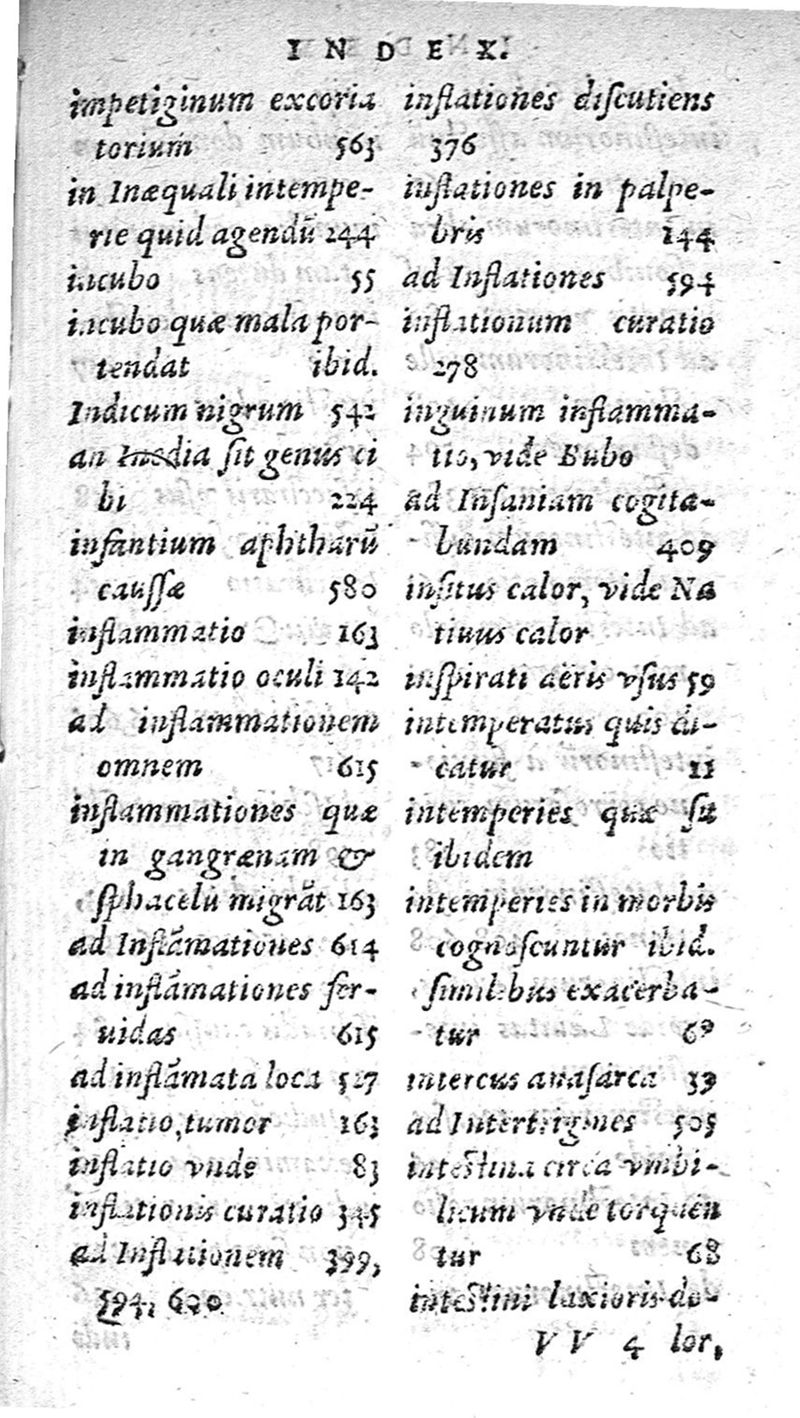 INDEX.
impetiginum excoria
torium 563
in Inæquali intempe-
rie quid agendū 244
incubo 55
incubo quæ mala por-
tendat ibid.
Indicum nigrum 542
an Inedia sit genus ci
bi 224
infantium aphtharū
caussæ 580
inflammatio 163
inflammatio oculi 142
ad inflammationem
omnem 615
inflammationes quæ
in gangrænam &
sphacelū migrāt 163
ad Inflāmationes 614
ad inflāmationes fer-
uidas 615
ad inflāmata loca 527
inflatio, tumor 163
inflatio vnde 83
inflationis curatio 345
ad Inflationem 399,
594, 600
inflationes discutiens
376
inflationes in palpe-
bris 144
ad Inflationes 594
inflationum curatio
278
inguinum inflamma-
tio, vide Bubo
ad Insaniam cogita-
bundam 409
insitus calor, vide Na
tiuus calor
inspirati aëris vsus 59
intemperatus quis di-
catur 11
intemperies quæ sit
ibidem
intemperies in morbis
cognoscuntur ibid.
similibus exacerba-
tur
intercus anasarca 39
ad Intertrigines 505
intestina circa vmbi-
licum vnde torquēn
tur 68
intestini laxioris do-
VV 4 lor,